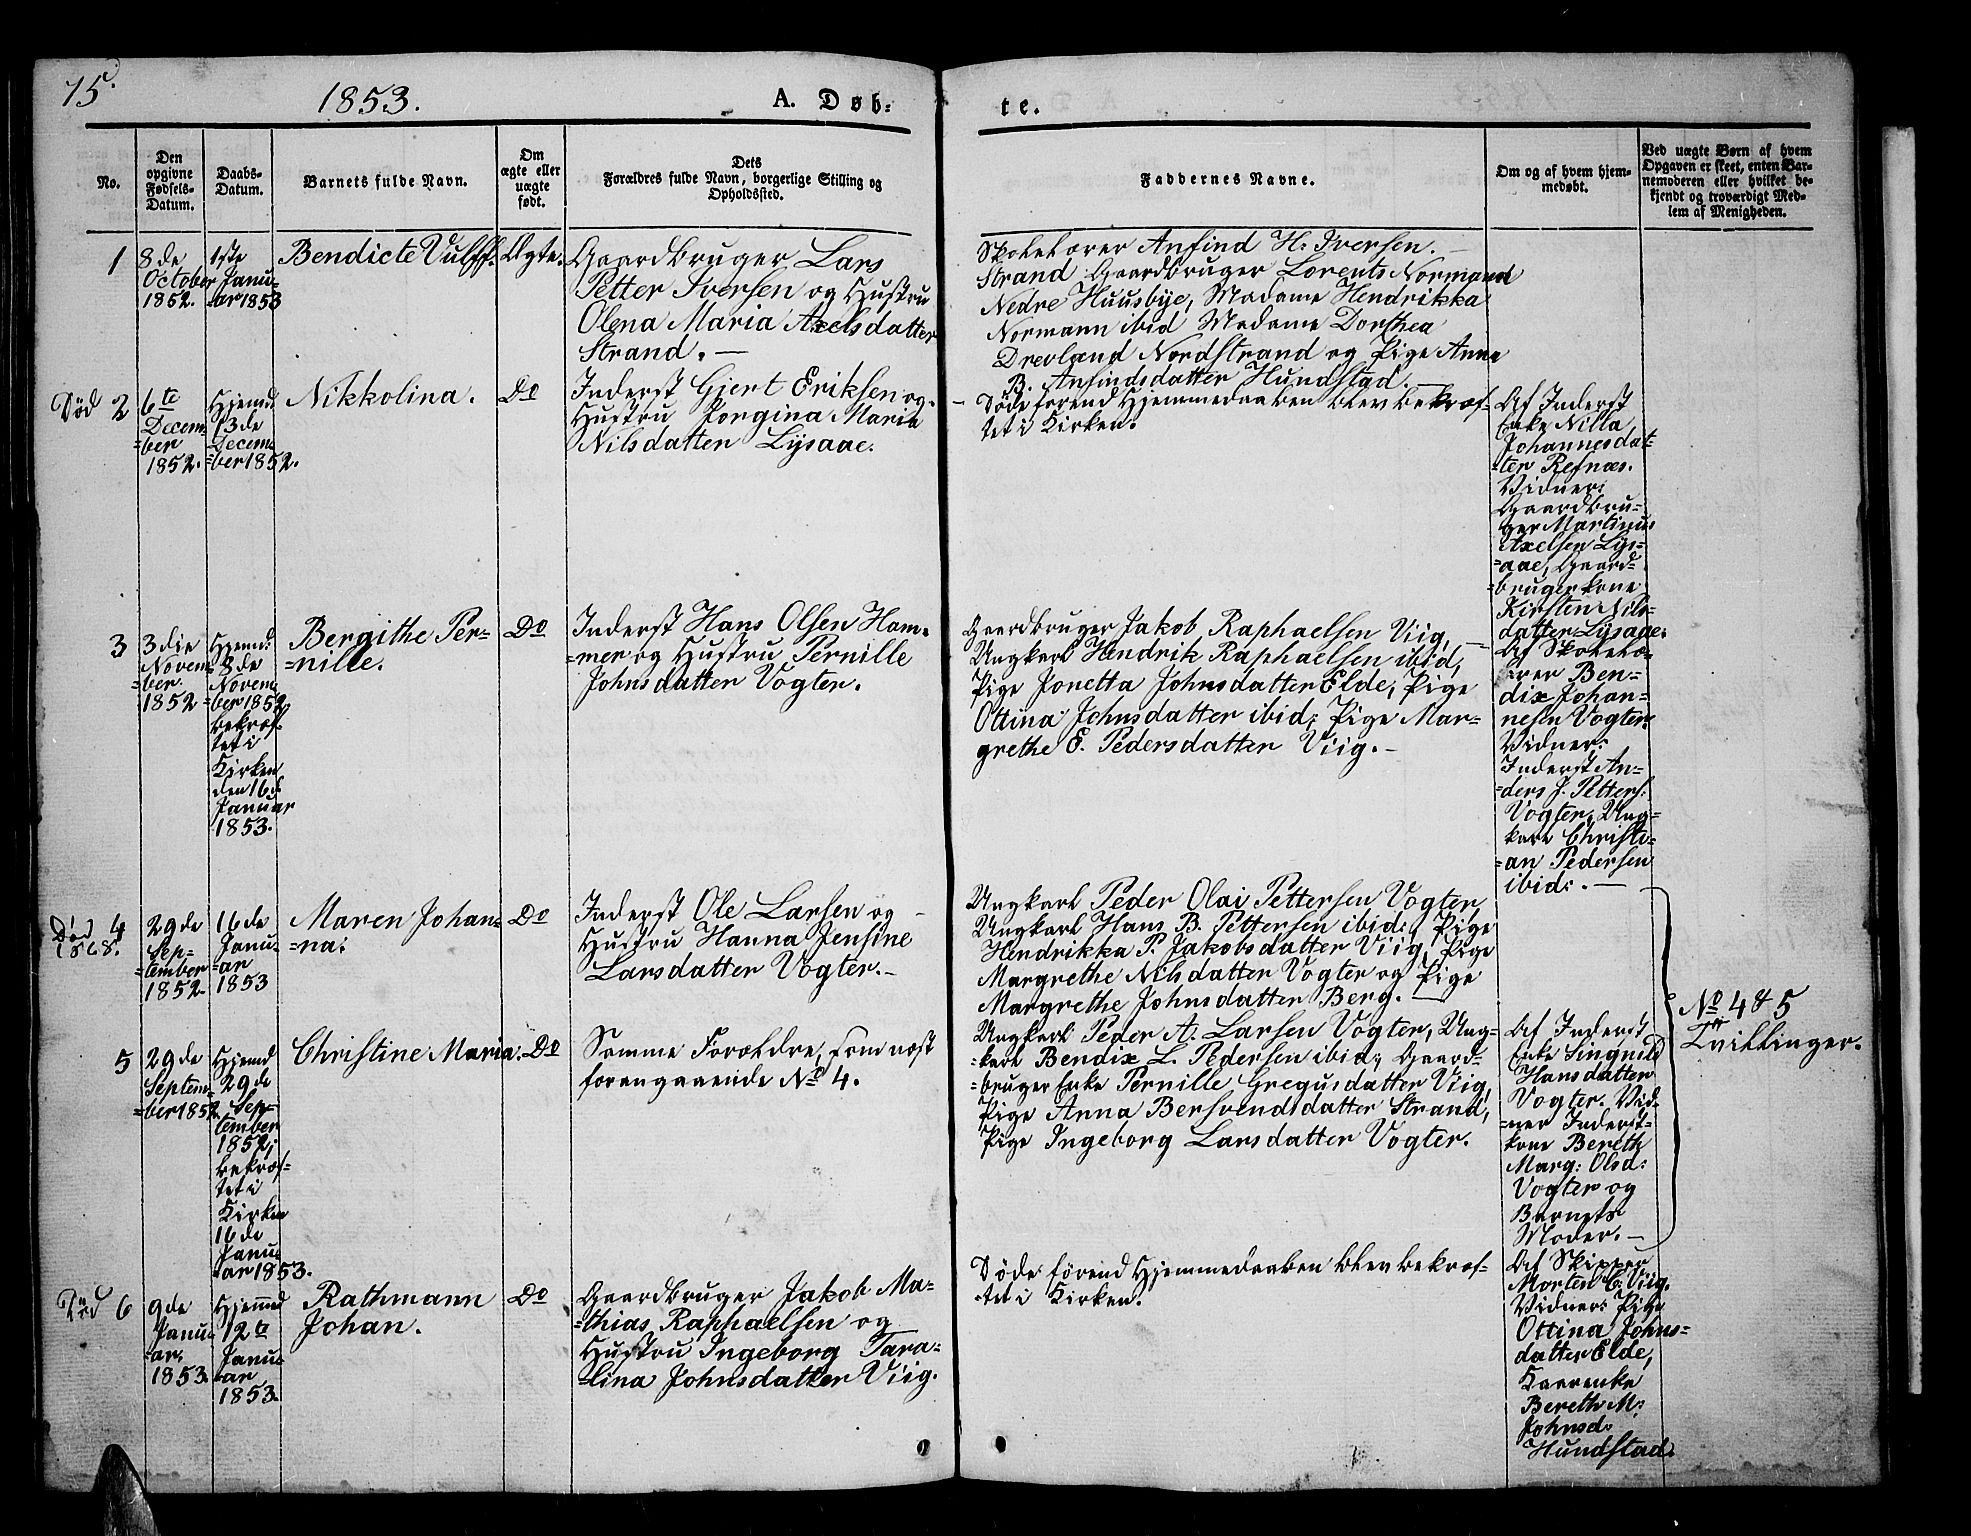 75.
1853.
A. Døb-
te.
No.
Den
opgivne
Fødsels-
Datum.
Daabs-
Datum.
Barnets fulde Navn.
Om
ægte eller
uægte
født.
Dets
Forældres fulde Navn, borgerlige Stilling og
Opholdssted.
Faddernes Navne.
Om og af hvem hjem-
medøbt.
Ved uægte Børn af hvem
Opgaven er skeet, enten Bar-
nemoderen eller hvilket be-
kjendt og troværdigt Med-
lem af Menigheden.
1
8de
October
1852.
1ste
Janu-
ar 1853
Bendicte Vulff.
Ægte.
Gaardbruger Lars
Petter Iversen og Hustru
Olena Maria Axelsdatter
Strand. —
Skolelærer Anfind H. Iversen.
Strand Gaardbruger Lorents Normand
Nedre Huusbye, Madame Hendrikka
Normann ibid Madame Dorthea
Drevland Nordstrand og Pige Anne
B. Anfindsdatter Hundstad. —
Død 2
6te
Decem-
ber
1852.
Hjemd
13de
Decem-
ber 1852.
Nikkolina.
Do
Inderst Gjert Eriksen og
Hustru Jorgina Maria
Nilsdatter Lysaae.
Døde førend Hjemmedaaben blev bekræf-
tet i Kirken.
Af Inderst
Enke Nilla
Johannesdat-
ter Refnæs.
Vidner:
Gaardbru-
ger Martinus
Axelsen Lys-
aae, Gaard-
brugerkone
Kirsten Nils-
datter Lysaae.
3
3die
Novem-
ber
1852
Hjemd:
8de
Novem-
ber 1852
bekræf-
tet i
Kirken
den 16de
Januar
1853.
Bergithe Per-
nille.
Do
Inderst Hans Olsen Ham-
mer og Hustru Pernille
Johnsdatter Vogter.
Gaardbruger Jakob Raphaelsen Viig, —
Ungkarl Hendrik Raphaelsen ibid,
Pige Jonetta Johnsdatter Elde, Pige
Ottina Johnsdatter ibid; Pige Mar-
grethe E. Pedersdatter Viig. —
Af Skolelæ-
rer Ben-
dix Johan-
nesen Vogter.
Vidner:
Inderst An-
ders J. Petters:
Vogter, Ung-
karl Christi-
an Pedersen
ibid: . —
Død 4
1868.
29de
Sep-
tember
1852
16de
Janu-
ar
1853
Maren Johan-
na.
Do
Inderst Ole Larsen og
Hustru Hanna Jensine
Larsdatter Vogter. —
Ungkarl Peder Olai Pettersen Vogter,
Ungkarl Hans B. Pettersen ibid:, Pige
Hendrikka P. Jakobsdatter Viig, Pige
Margrethe Nilsdatter Vogter og Pige
Margrethe Johnsdatter Berg. —
No 4 & 5
Tvillinger.
5
29de
Septem-
ber 1852
Hjemd
29de
Sep-
tember
1852;
bekræf-
tet i
Kirken
16de
Janu-
ar 1853.
Christine Maria.
Do
Samme Forældre, som næst
foregaaende No 4.
Ungkarl Peder A. Larsen Vogter, Ung-
karl Bendix L. Pedersen ibid:, Gaard-
bruger Enke Pernille Gregusdatter Viig,
Pige Anna Bersvendsdatter Strand,
Pige Ingeborg Larsdatter Vogter.
Af Inderst
Enke Singnild
Hansdatter
Vogter. Vid-
ner Inderst-
kone Bereth
Marg: Olsd:
Vogter og
Barnets
Moder. —
Død 6
9de
Janu-
ar
1853.
Hjemmd
12te
Janu-
ar
1853.
Rathmann
Johan.
Do
Gaardbruger Jakob Ma-
thias Raphaelsen og
Hustru Ingeborg Tara-
lina Johnsdatter Viig.
Døde førend Hjemmedaaben blev bekræf-
tet i Kirken.
Af Skipper
Morten C. Viig.
Vidner: Pige
Ottina Johns-
datter Elde,
Kaarenke
Bereth M:
Johnsd:
Hundstad.